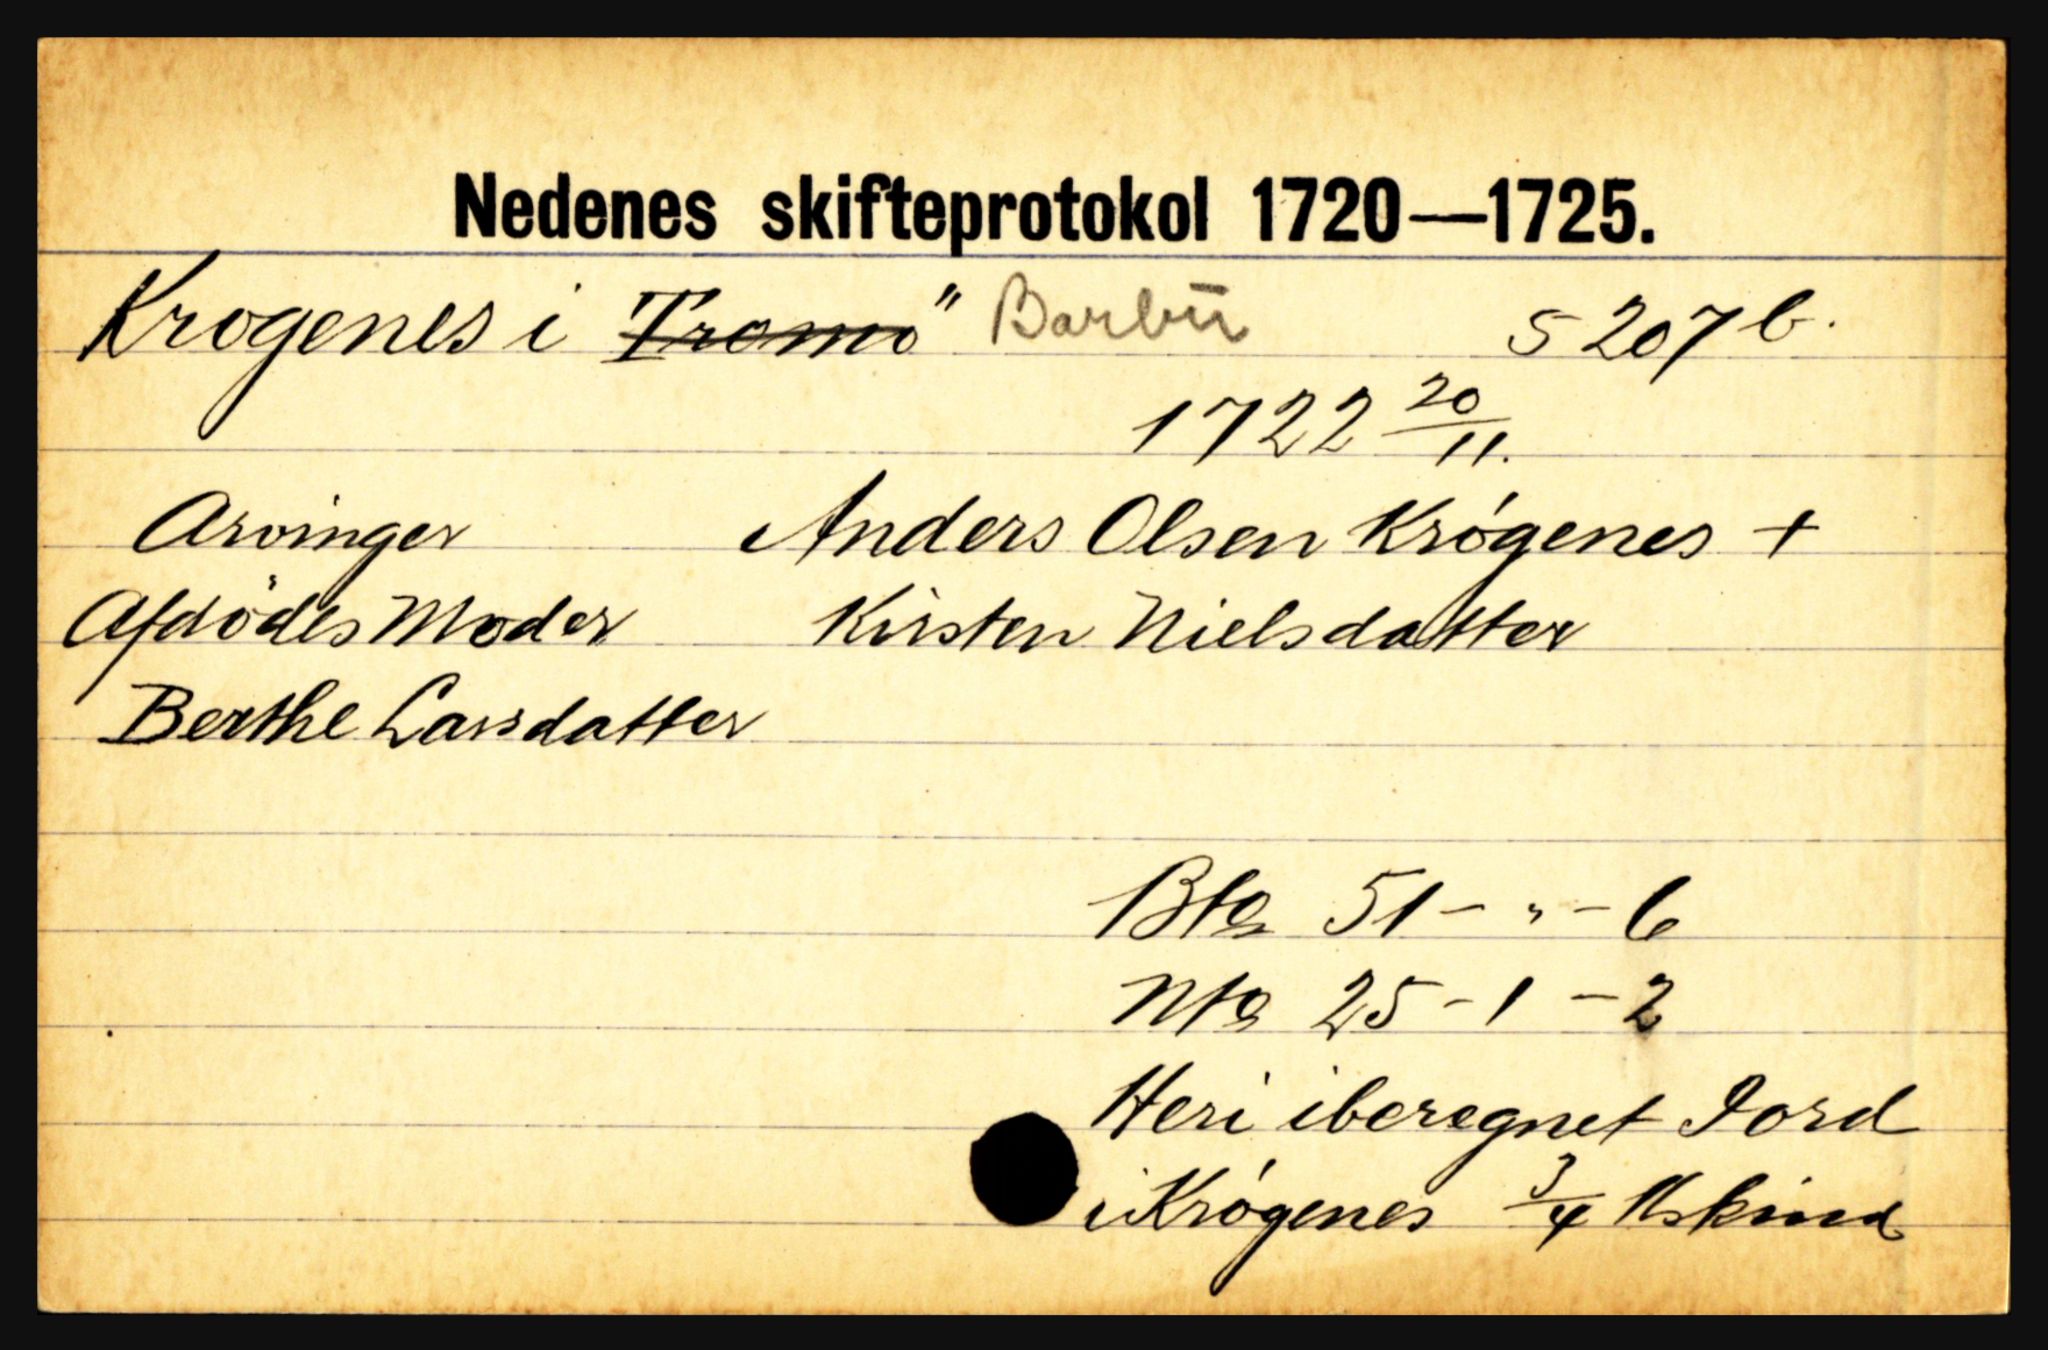 Nedenes skifteprotokol 1720—1725.
Krogenes i Tromö Barbu S 207 b.
1722 20/11.
Arvinger Anders Olsen Krógenes +
Afdödes Moder Kirsten Nielsdatter
Berthe Larsdatter
Bto 51 - " - 6
Nto 25 - 1 - 2
Heri iberegnet Jord
i Krógenes 3/4 Kskind